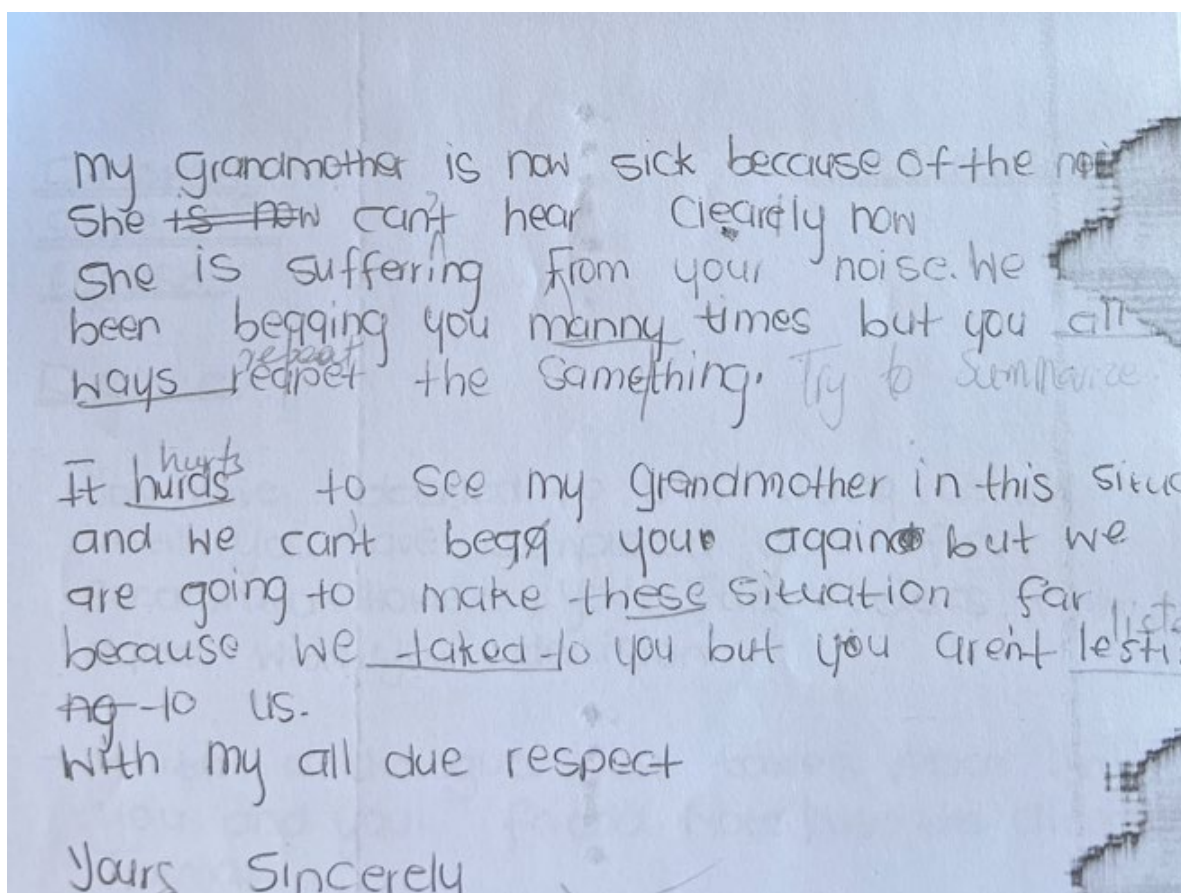 my grandmother is now sick because of the
She is now can't hear Clearly now
She is suffering From your noise. We
been begging you manny times but you all
repeat
ways reapet the samething. Try to Summarize
hurts
It hurds to see my grandmother in this
and we can't begg your again but we
are going to make these situation far
because we taked to you but you aren't lesti
ng to us.
With my all due respect
Yours Sincerely